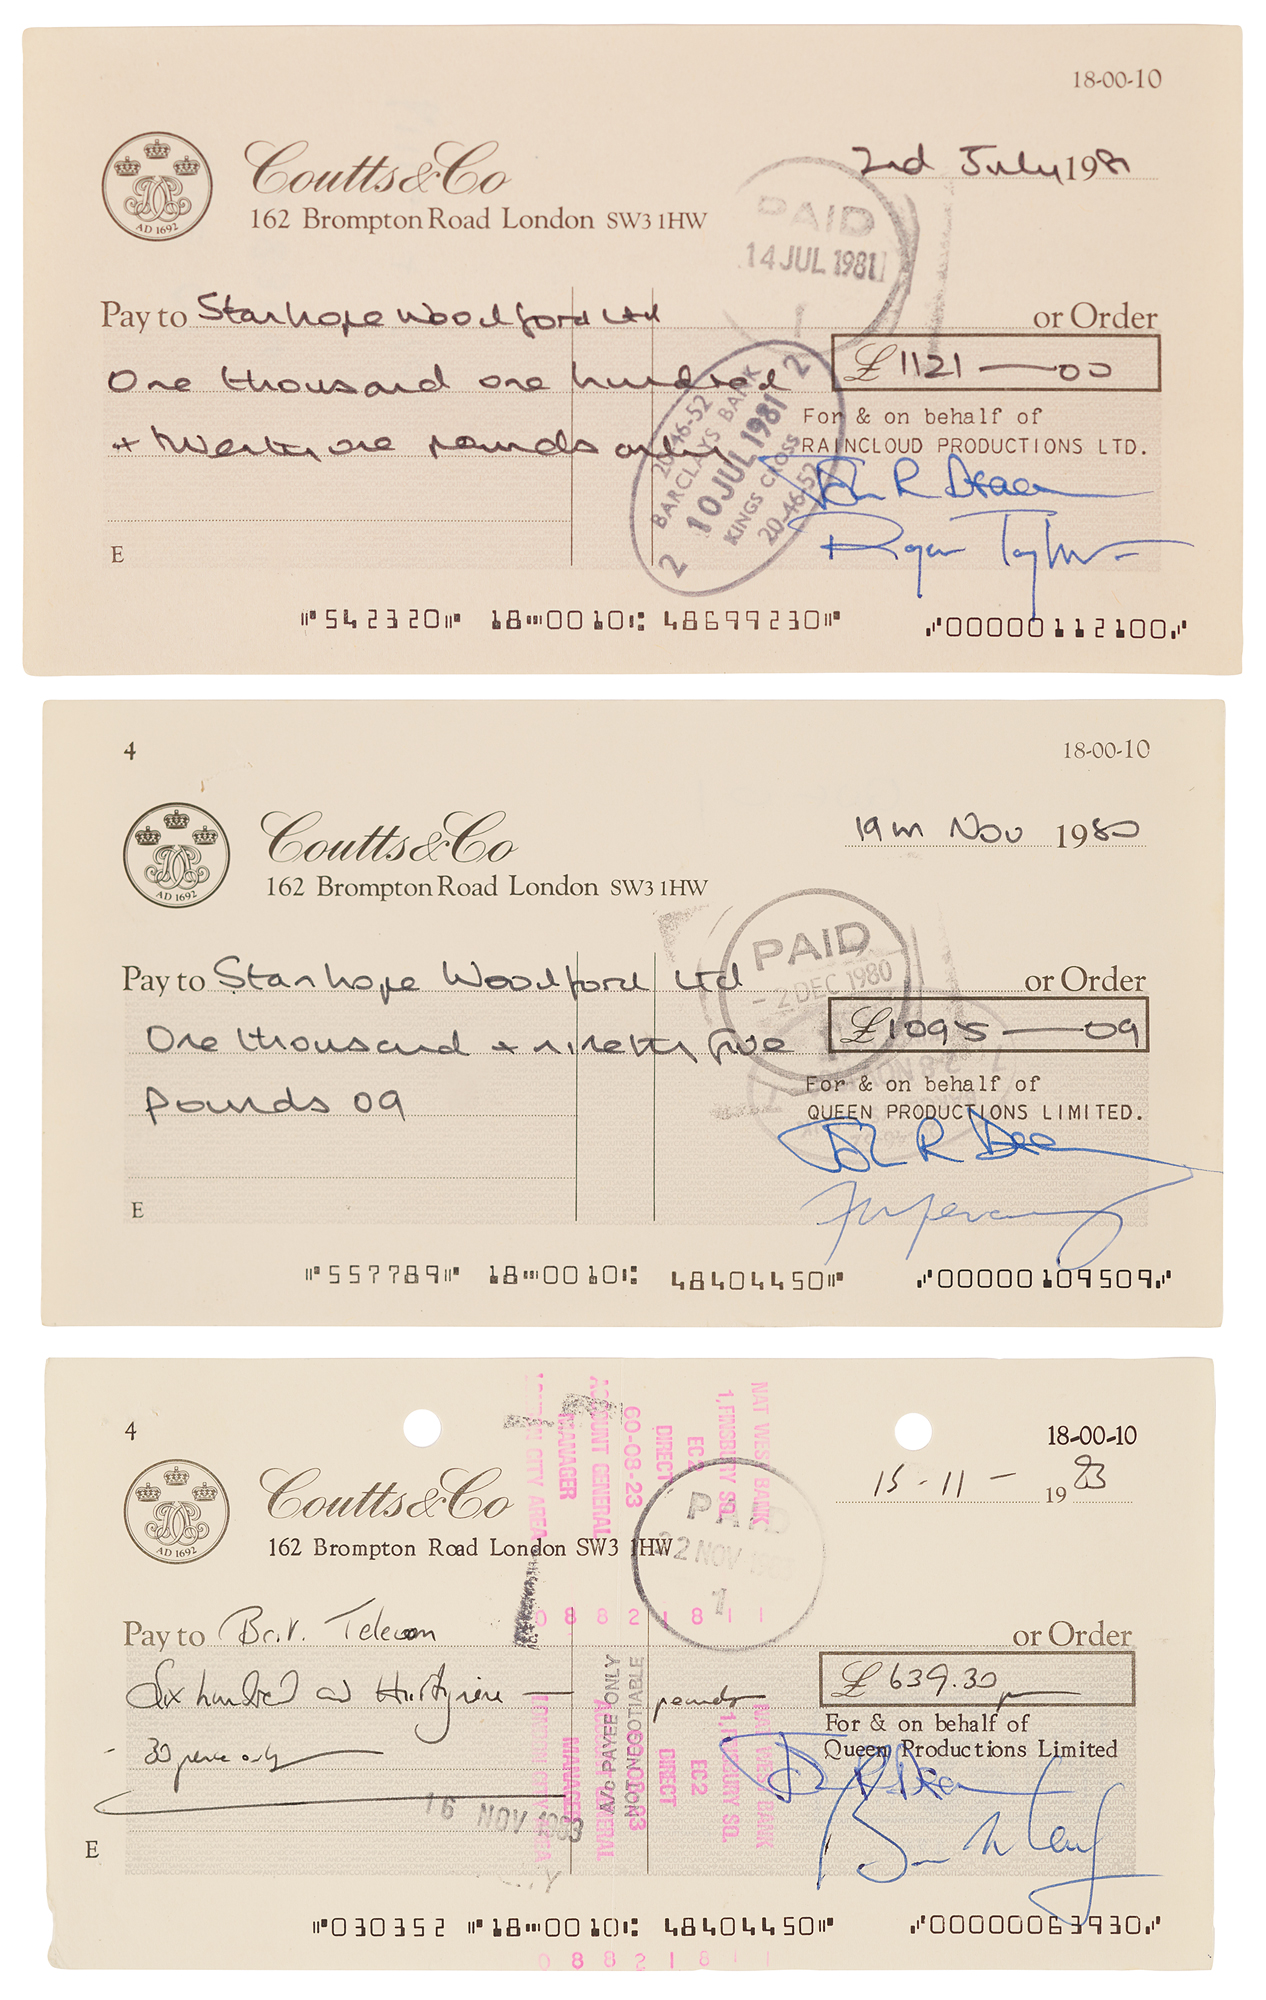 18-00-10
2nd July 1981
Coutts & Co
162 Brompton Road London SW3 1HW
AD 1692
PAID
14 JUL 1981
1
Pay to Stanhope Woodford Ltd or Order
One thousand one hundred
£1121 — 00
+ twenty one pounds only
For & on behalf of
RAINCLOUD PRODUCTIONS LTD.
20-46-52
BARCLAYS BANK
2 10 JUL 1981 2
KINGS CROSS
20-46-52
John R Deacon
Roger Taylor
E
542320 18 0010 48699230 00000112100
4
18-00-10
19th Nov 1980
Coutts & Co
162 Brompton Road London SW3 1HW
AD 1692
PAID
- 2 DEC 1980
Pay to Stanhope Woodford Ltd or Order
One thousand + ninety five
£1095 — 09
pounds 09
For & on behalf of
QUEEN PRODUCTIONS LIMITED.
John R Deacon
F Mercury
E
557789 18 0010 48404450 00000109509
4
18-00-10
15-11- 1983
Coutts & Co
162 Brompton Road London SW3 1HW
AD 1692
NAT WEST BANK
1, FINSBURY SQ.
EC2
DIRECT
60-08-23
ACCOUNT GENERAL
MANAGER
LONDON CITY AREA
PAID
22 NOV 1983
1
0 8 8 2 1 8 1 1
Pay to Brit. Telecom or Order
Six hundred and thirty nine — pounds
£639.30
- 30 pence only
For & on behalf of
Queen Productions Limited
A/c PAYEE ONLY
NOT NEGOTIABLE
NAT WEST BANK
1, FINSBURY SQ.
EC2
DIRECT
ACCOUNT GENERAL
MANAGER
LONDON CITY AREA
16 NOV 1983
John R Deacon
Brian May
E
030352 18 0010 48404450 00000063930
0 8 8 2 1 8 1 1